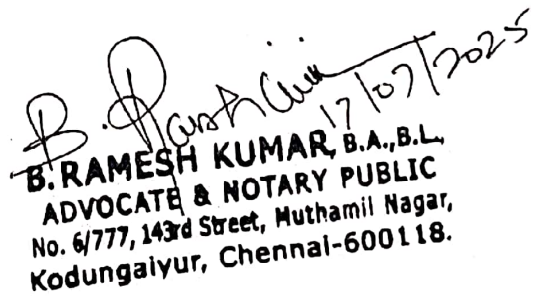 B. Ramesh Kumar
17/07/2025
B. RAMESH KUMAR, B.A.,B.L.,
ADVOCATE & NOTARY PUBLIC
No. 6/777, 143rd Street, Muthamil Nagar,
Kodungaiyur, Chennai-600118.